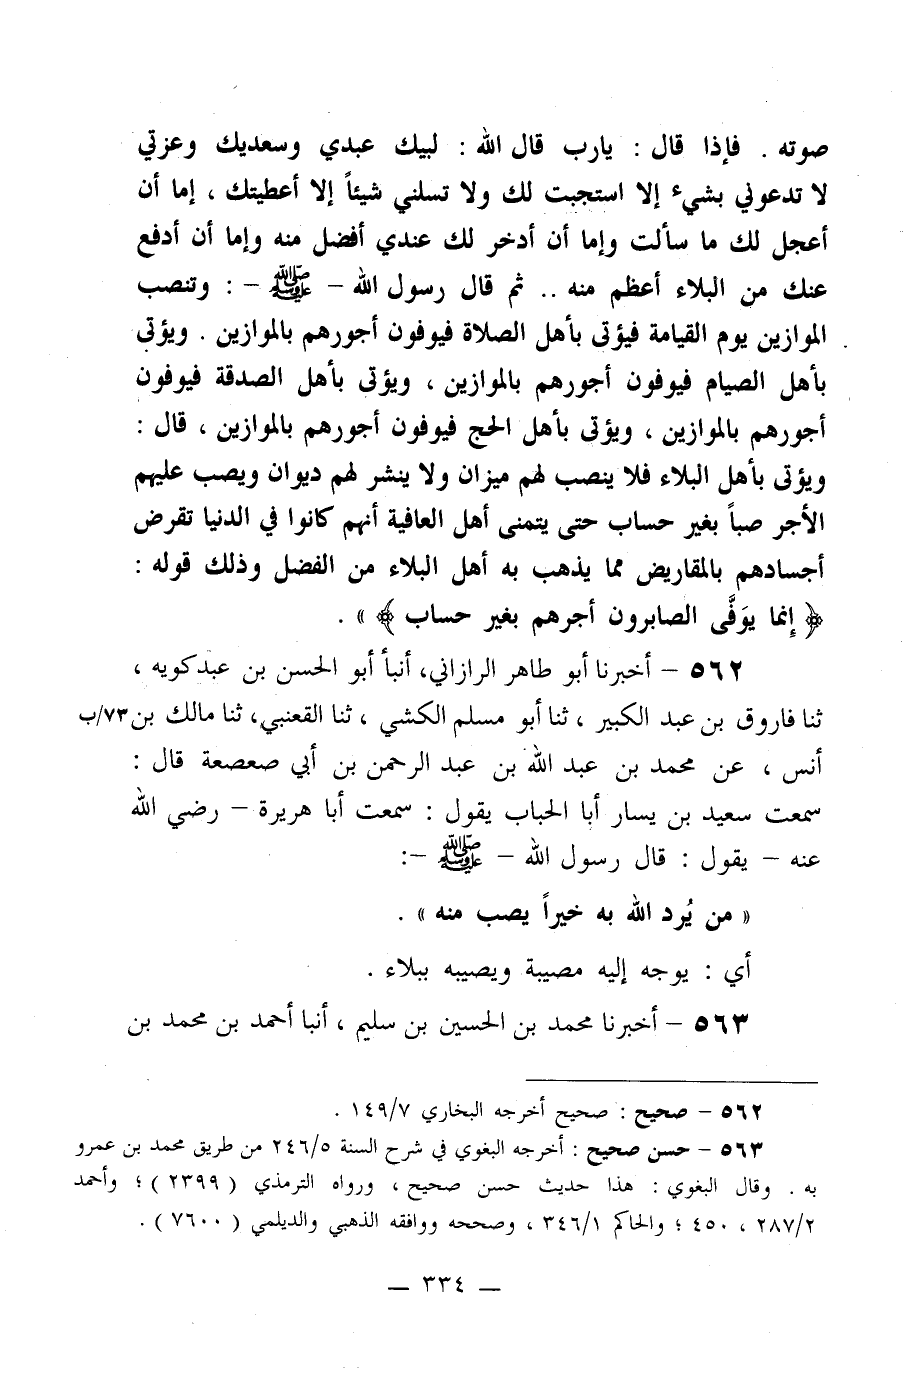 صوته . فإذا قال : يارب قال الله : لبيك عبدي وسعديك وعزتي
لا تدعوني بشيء إلا استجبت لك ولا تسلني شيئاً إلا أعطيتك ، إما أن
أعجل لك ما سألت وإما أن أدخر لك عندي أفضل منه وإما أن أدفع
عنك من البلاء أعظم منه .. ثم قال رسول الله – ﷺ – : وتنصب
الموازين يوم القيامة فيؤتى بأهل الصلاة فيوفون أجورهم بالموازين . ويؤتى
بأهل الصيام فيوفون أجورهم بالموازين ، ويؤتى بأهل الصدقة فيوفون
أجورهم بالموازين ، ويؤتى بأهل الحج فيوفون أجورهم بالموازين ، قال :
ويؤتى بأهل البلاء فلا ينصب لهم ميزان ولا ينشر لهم ديوان ويصب عليهم
الأجر صباً بغير حساب حتى يتمنى أهل العافية أنهم كانوا في الدنيا تقرض
أجسادهم بالمقاريض مما يذهب به أهل البلاء من الفضل وذلك قوله :
﴿ إِنما يوَفَّى الصابرون أجرهم بغير حساب ﴾ » .
٥٦٢ – أخبرنا أبو طاهر الرازاني، أنبأ أبو الحسن بن عبدكويه ،
ثنا فاروق بن عبد الكبير ، ثنا أبو مسلم الكشي ، ثنا القعنبي، ثنا مالك بن ٧٣/ب
أنس ، عن محمد بن عبد الله بن عبد الرحمن بن أبي صعصعة قال :
سمعت سعيد بن يسار أبا الحباب يقول : سمعت أبا هريرة – رضي الله
عنه – يقول : قال رسول الله – ﷺ –:
« من يُرد الله به خيراً يصب منه » .
أي : يوجه إليه مصيبة ويصيبه ببلاء .
٥٦٣ – أخبرنا محمد بن الحسين بن سليم ، أنبا أحمد بن محمد بن
٥٦٢ – صحيح : صحيح أخرجه البخاري ١٤٩/٧ .
٥٦٣ – حسن صحيح : أخرجه البغوي في شرح السنة ٢٤٦/٥ من طريق محمد بن عمرو
به . وقال البغوي : هذا حديث حسن صحيح ، ورواه الترمذي ( ٢٣٩٩ ) ؛ وأحمد
٢٨٧/٢ ، ٤٥٠ ؛ والحاكم ٣٤٦/١ ، وصححه ووافقه الذهبي والديلمي ( ٧٦٠٠ ) .
— ٣٣٤ —